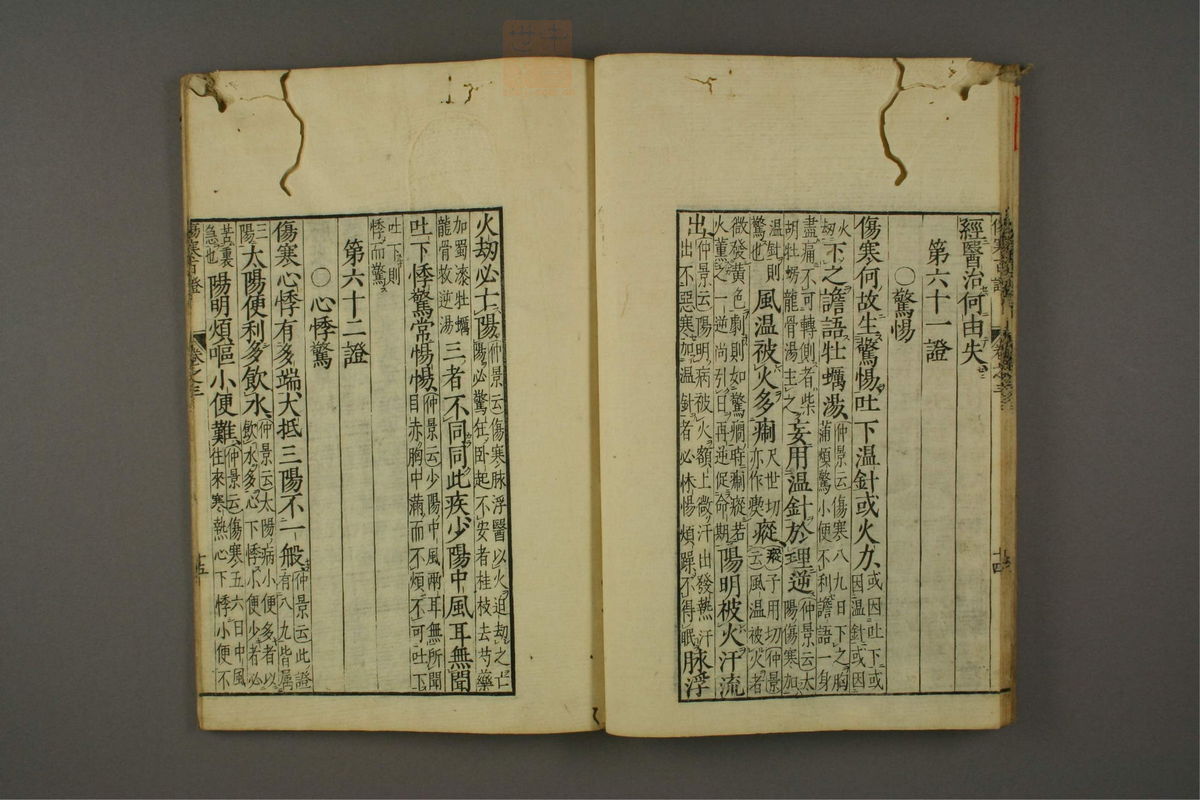 經醫治何由失
第六十一證
○驚惕
傷寒何故生驚惕吐下温針或火力或因吐下或因温針或因
火劫下之譫語牡蠣湯仲景云傷寒八九日下之胸蒲煩驚小便不利譫語一身
盡痛不可轉側者柴胡牡蠣龍骨湯主之妄用温針於理逆仲景云太陽傷寒加
温針則驚也風温被火多瘈尺世切亦作瘈瘲子用切仲景云風温被火者
微發黄色劇則如驚癇時瘈瘲若火熏之一逆尚引日再逆促命期陽明被火汗流
出仲景云陽明病被火額上微汗出發熱汗出不惡寒加温針者必怵惕煩躁不得眠脉浮
火劫必亡陽仲景云傷寒脉浮醫以火迫劫之亡陽必驚狂卧起不安者桂枝去芍藥
加蜀漆牡蠣龍骨救逆湯三者不同同此疾少陽中風耳無聞
吐下悸驚常惕惕仲景云少陽中風兩耳無所聞目赤胸中滿而不煩不可吐下
吐下則悸而驚
第六十二證
○心悸驚
傷寒心悸有多端大抵三陽不一般仲景云此證有八九皆属
三陽太陽便利多飲水仲景云太陽病小便多者以飲水多心下悸小便少者必
苦裏急也陽明煩嘔小便難仲景云傷寒五六日中風往來寒熱心下悸小便不
傷寒百證
卷之三
十五
十四